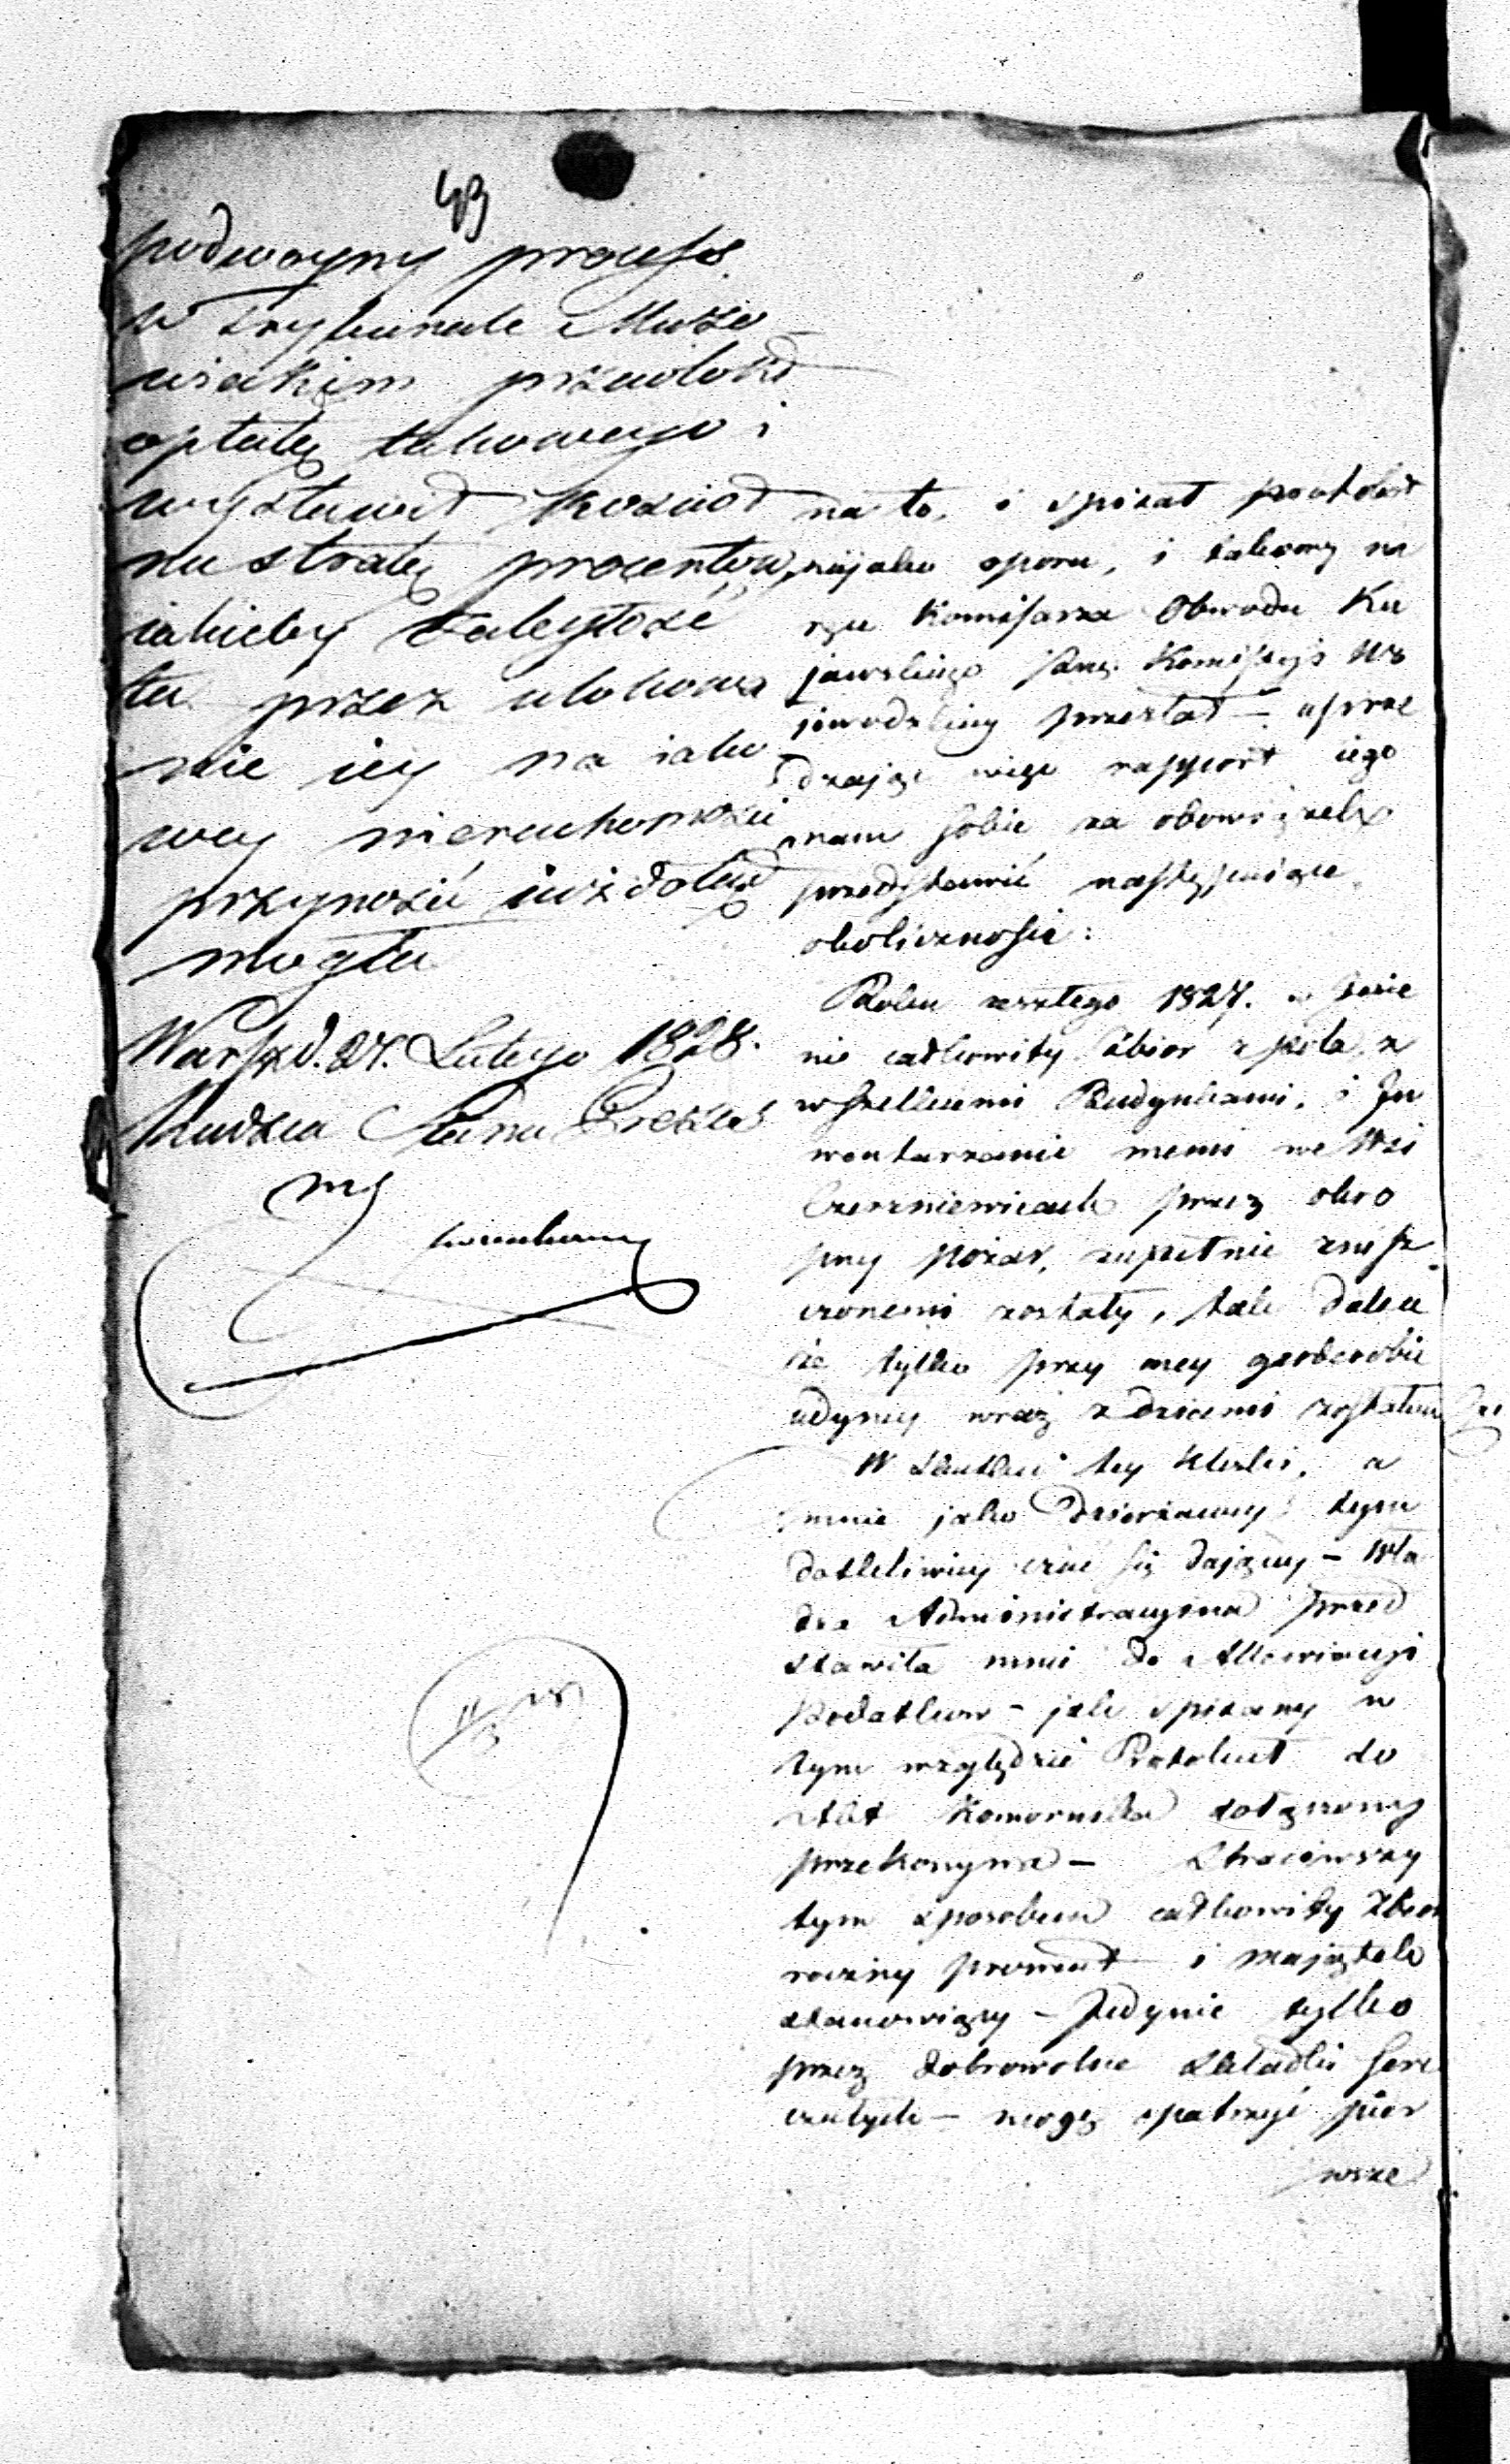 43
podwoyny process
w Trybunale Mazo
wieckim przewlokł
opłatę takowego i
wystawił koszt
na stratę procentow,
iakieby zaległość
ta przez ulokowa
nie iey na iako
wey nieruchomości
przynosić iuż dotąd
mogła
Warsz d. 27. Lutego 1828.
Radzca Stanu Prezes
mg
na to, i spisał protokół
niejako oporu, i takowy na
ręce Komisarza Obwodu Ku
jawskiego Prze. Komissyi Wo
jewodzkiey przesłał – uprze
dzając więc rapport iego
mam sobie za obowiązek
przedstawić następuiące
okoliczności:
Roku zeszłego 1827. w Jesie
ni całkowity Zbior z pola, z
wszelkiemi Budynkami, i In
wentarzami memi we Wsi
Czerniewicach przez okro
pny pożar, zupełnie znisz
czonemi zostały, tak dalece
że tylko przy mey garderobie
iedyney wraz z dziećmi zostałem
W skutku tey klęski, a
mnie jako Dzierżawcy tym
dotkliwiey czuć się dającey – Wła
dza Administracyina przed
stawiła mnie do Allewiacyi
Podatkow – jak spisany w
tym względzie Protokuł do
Akt Komornika dołączony
przekonywa – Straciwszy
tym sposobem całkowity Zbior
roczny prowent i majątek
stanowiący – Jedynie tylko
przez dobrowolne składki serc
czułych – mogę opatrzyć pier
wsze